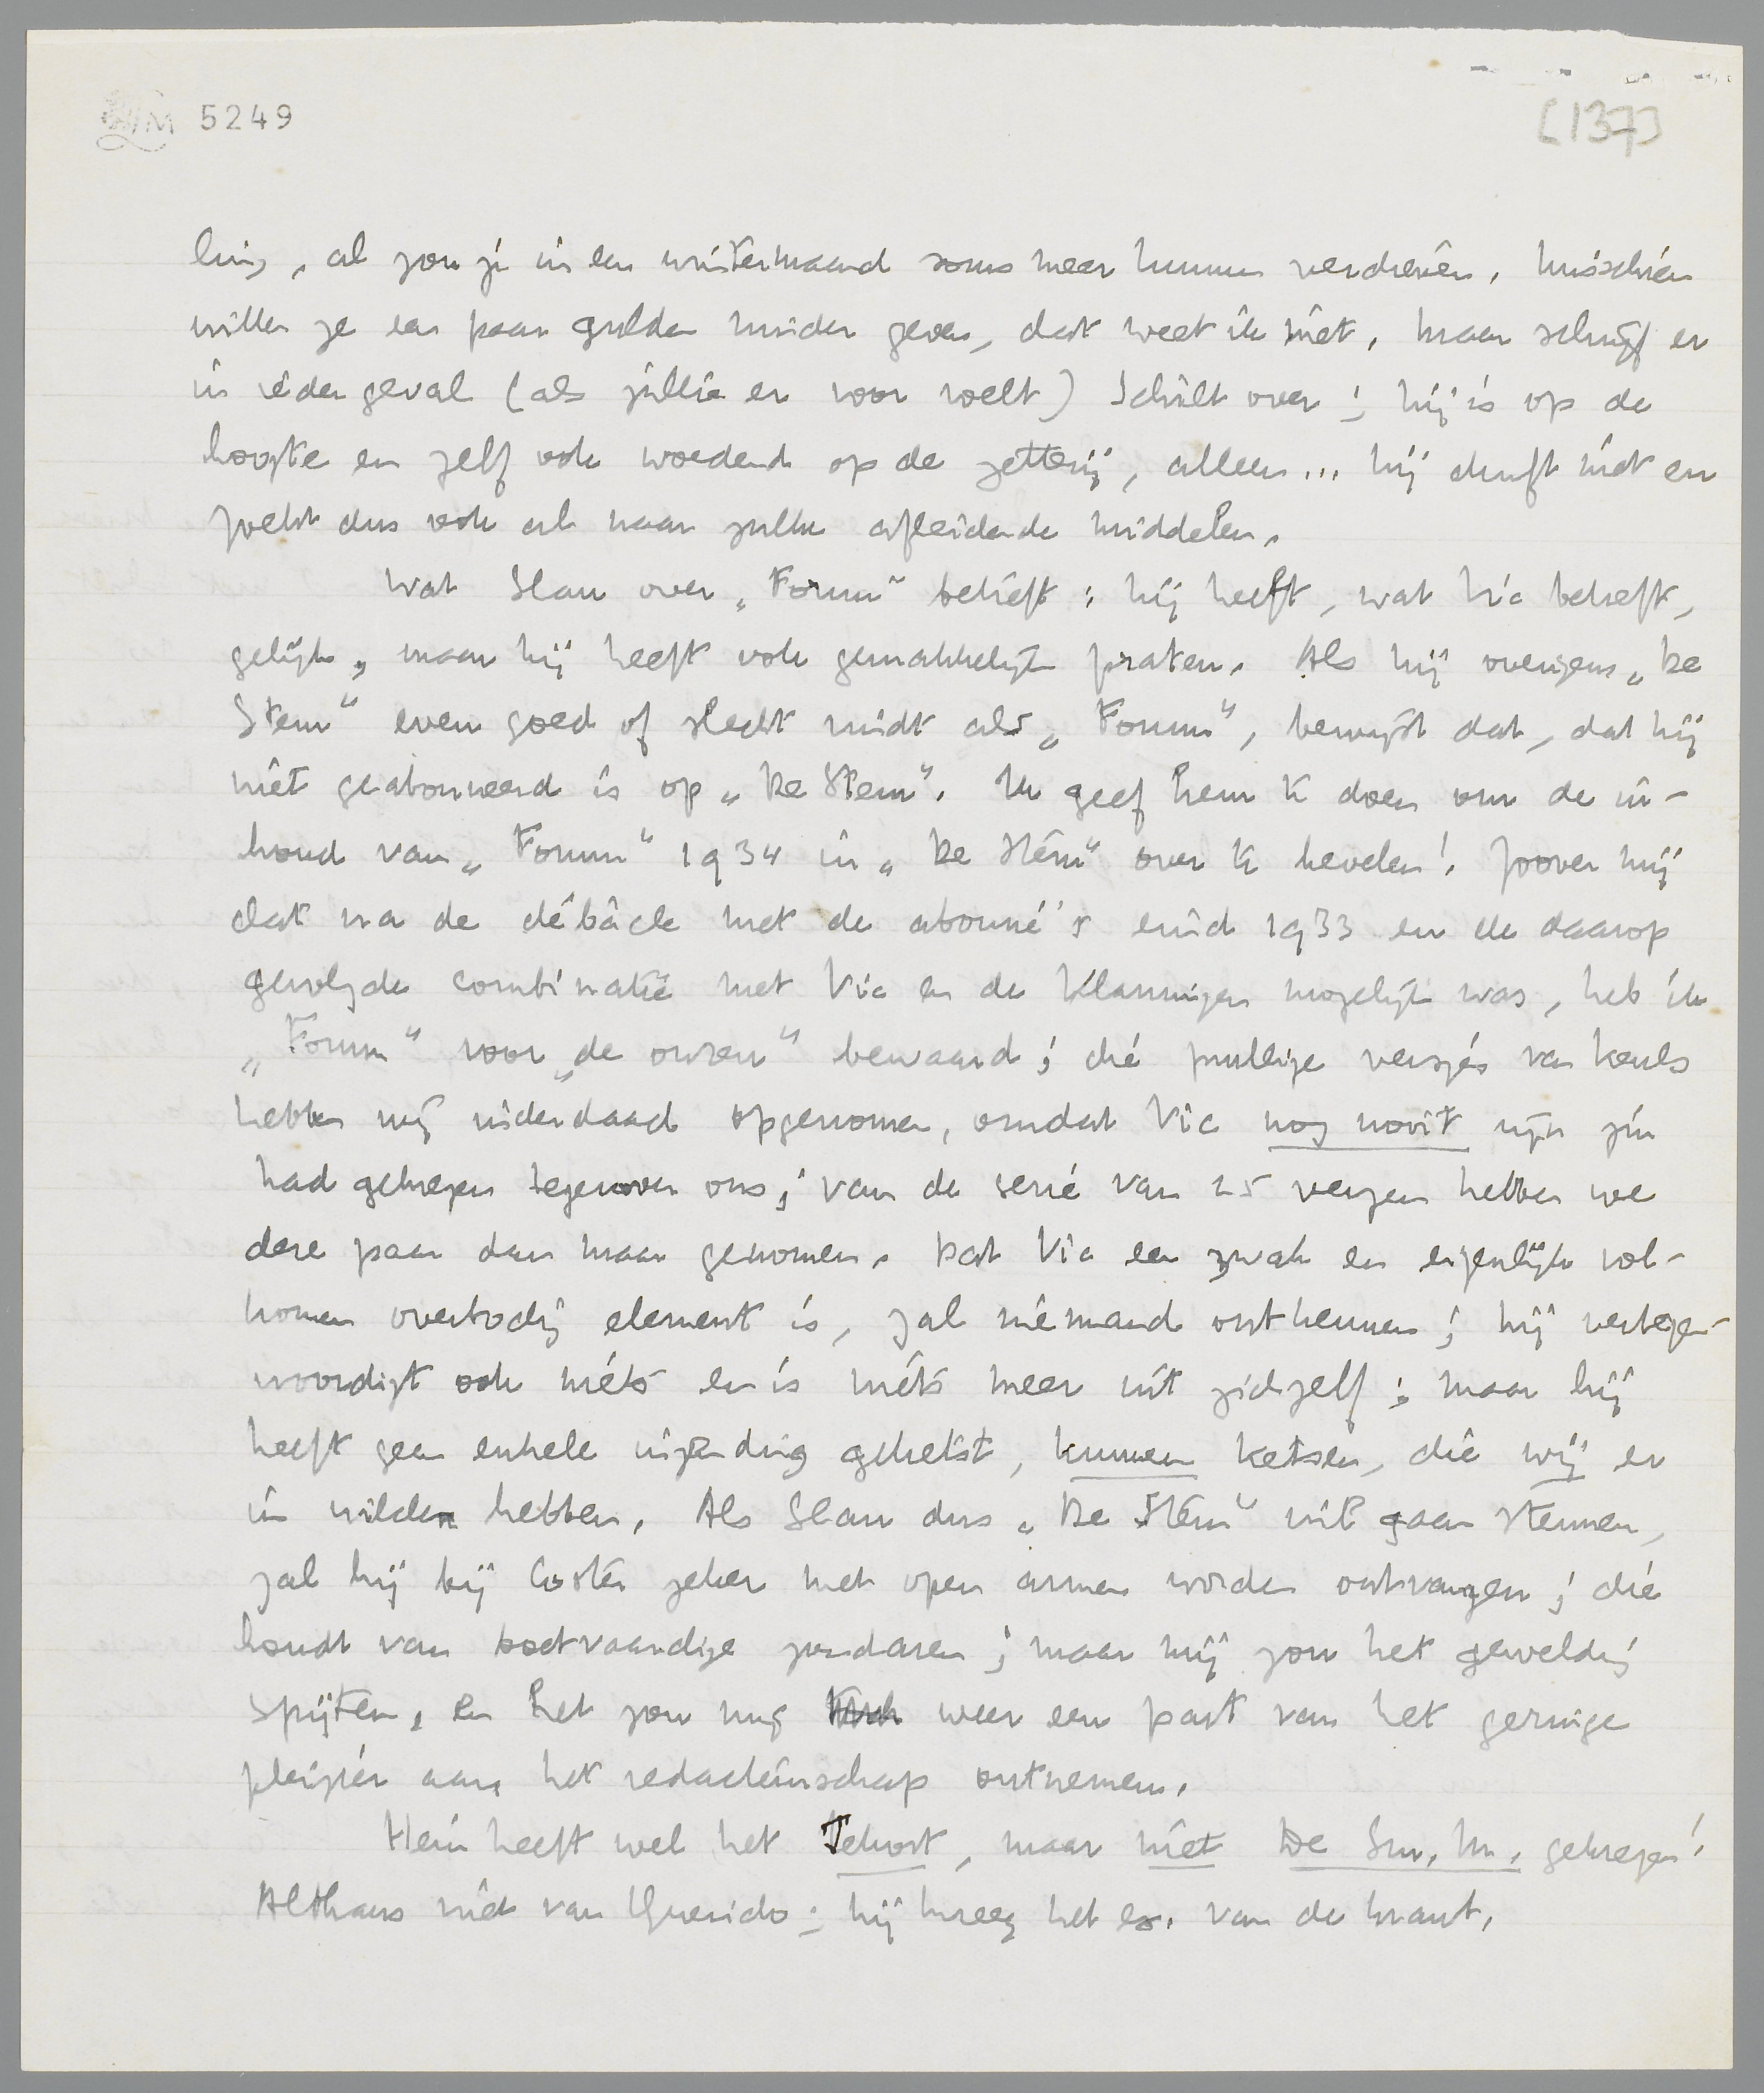 LM 5249
[137]
ling, al zou je in een wintermaand soms meer kunnen verdienen. Misschien
willen ze een paar gulden minder geven, dat weet ik niet, maar schrijf er
in ieder geval (als jullie er voor voelt) Schilt over; hij is op de
hoogte en zelf ook woedend op de zetterij, alleen... hij durft niet en
zoekt dus ook al naar zulke afleidende middelen.
Wat Slau over „Forum” betreft: hij heeft, wat Vic betreft,
gelijk, maar hij heeft ook gemakkelijk praten. Als hij overigens „De
Stem” even goed of slecht vindt als „Forum”, bewijst dat, dat hij
niet geabonneerd is op „De Stem”. Ik geef hem te doen om de in-
houd van „Forum” 1934 in „De Stem” over te hevelen! Zoover mij
dat na de débâcle met de abonné's eind 1933 en de daarop
gevolgde combinatie met Vic en de Vlamingen mogelijk was, heb ik
„Forum” voor „de onzen” bewaard; die prullige versjes van Keuls
hebben wij inderdaad opgenomen, omdat Vic nog nooit zijn zin
had gekregen tegenover ons; van de serie van 25 verzen hebben we
deze paar dan maar genomen. Dat Vic een zwak en eigenlijk vol-
komen overbodig element is, zal niemand ontkennen; hij vertegen-
woordigt ook niets en is niets meer uit zichzelf; maar hij
heeft geen enkele inzending geketst, kunnen ketsen, die wij er
in wilden hebben. Als Slau dus „De Stem” wil gaan stemmen,
zal hij bij Coster zeker met open armen worden ontvangen; die
houdt van boetvaardige zondaren; maar mij zou het geweldig
spijten, en het zou mij weer een part van het geringe
pleizier aan het redacteurschap ontnemen.
Hein heeft wel het Tekort, maar niet De Sm. M. gekregen!
Althans niet van Querido; hij kreeg het ex. van de krant.